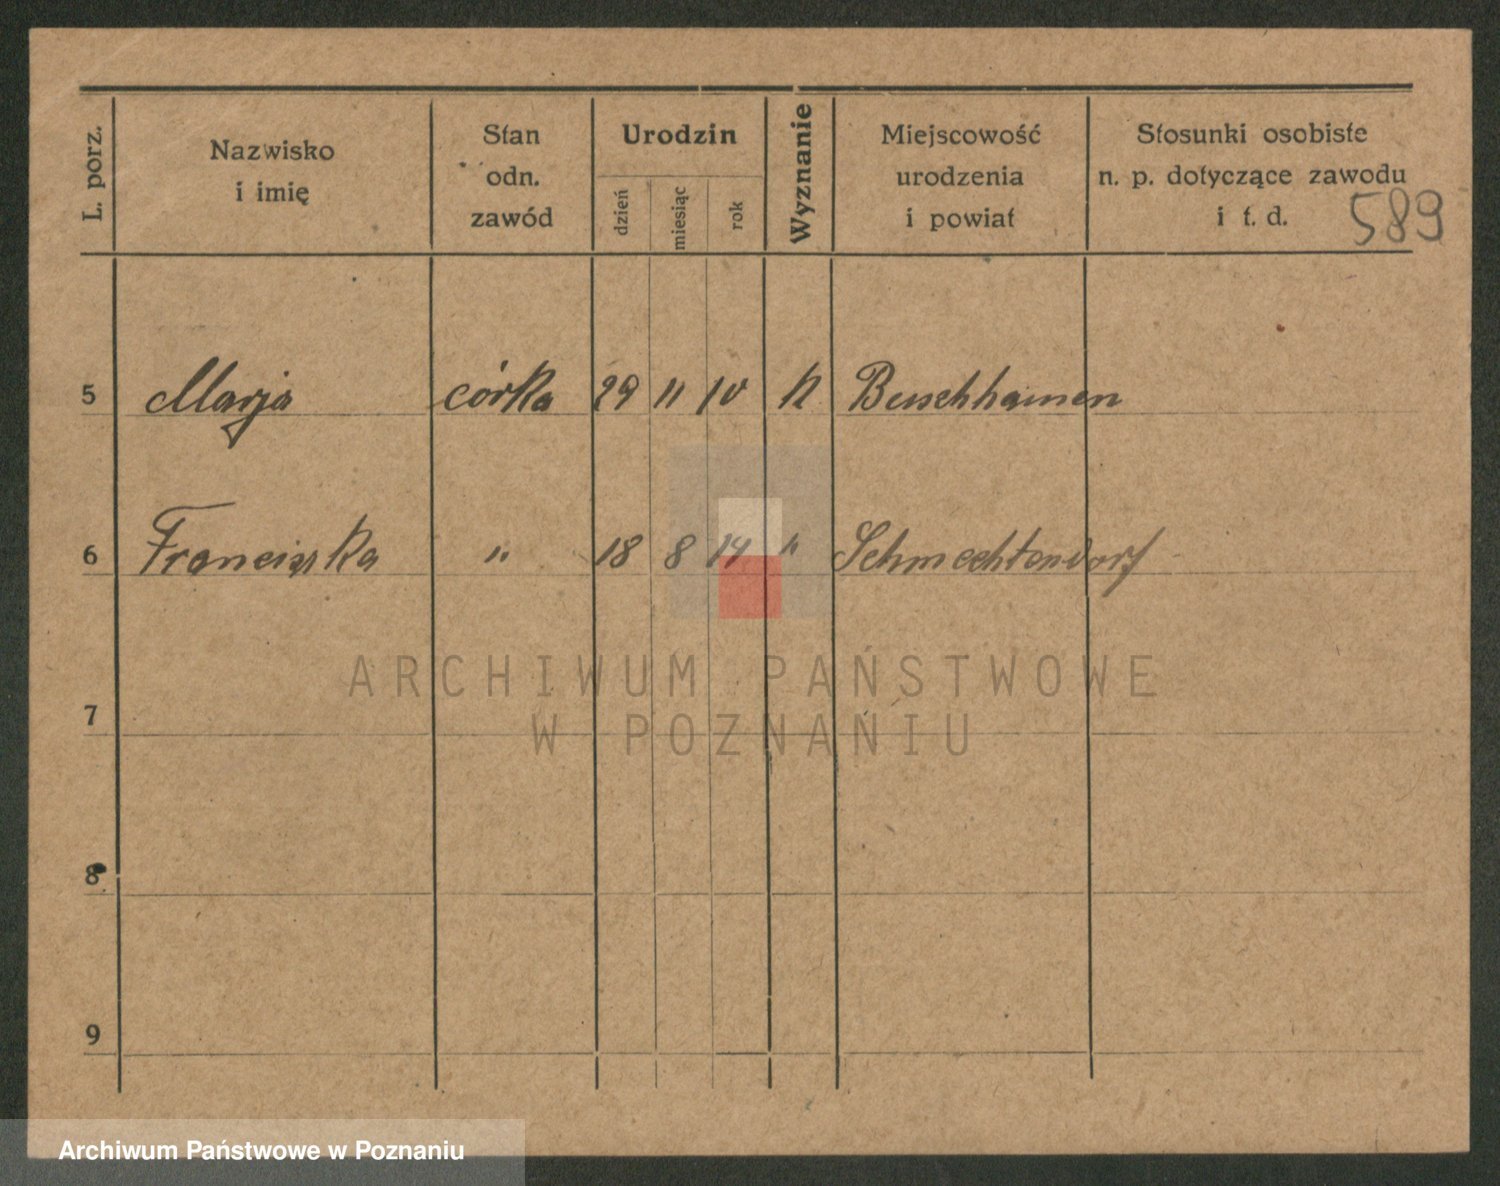 L. porz.
Nazwisko
i imię
Stan
odn.
zawód
Urodzin
dzień
miesiąc
rok
Wyznanie
Miejscowość
urodzenia
i powiat
Stosunki osobiste
n. p. dotyczące zawodu
i t. d.
589
5 Marja córka 29 11 10 k Buschhausen
6 Franciszka " 18 8 14 " Schmachtendorf
7
8
9
ARCHIWUM PAŃSTWOWE
W POZNANIU
Archiwum Państwowe w Poznaniu